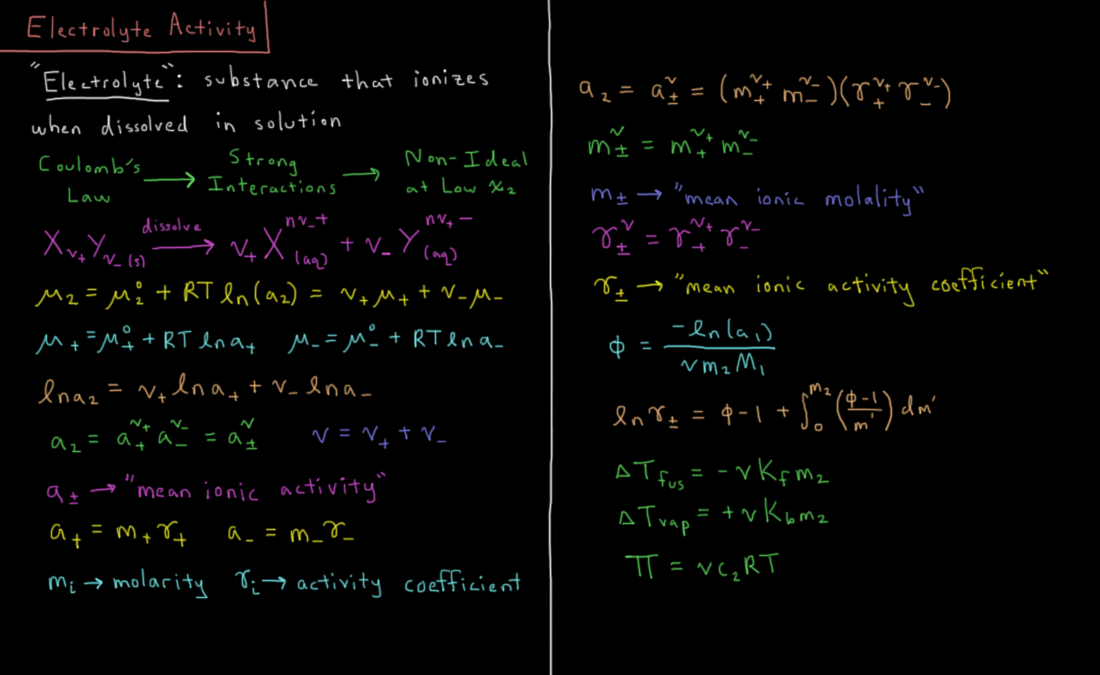 Electrolyte Activity
"Electrolyte": substance that ionizes
when dissolved in solution
Coulomb's Law → Strong Interactions → Non-Ideal at Low x₂
X_ν₊Y_ν₋(s) —dissolve→ ν₊ X^(nν₋+)_(aq) + ν₋ Y^(nν₊−)_(aq)
μ₂ = μ₂° + RT ln(a₂) = ν₊μ₊ + ν₋μ₋
μ₊ = μ₊° + RT ln a₊   μ₋ = μ₋° + RT ln a₋
ln a₂ = ν₊ ln a₊ + ν₋ ln a₋
a₂ = a₊^ν₊ a₋^ν₋ = a±^ν   ν = ν₊ + ν₋
a± → "mean ionic activity"
a₊ = m₊γ₊   a₋ = m₋γ₋
mᵢ → molarity   γᵢ → activity coefficient
a₂ = a±^ν = (m₊^ν₊ m₋^ν₋)(γ₊^ν₊ γ₋^ν₋)
m±^ν = m₊^ν₊ m₋^ν₋
m± → "mean ionic molality"
γ±^ν = γ₊^ν₊ γ₋^ν₋
γ± → "mean ionic activity coefficient"
ϕ = −ln(a₁) / νm₂M₁
ln γ± = ϕ−1 + ∫₀^m₂ ((ϕ−1)/m′) dm′
ΔT_fus = −νK_f m₂
ΔT_vap = +νK_b m₂
Π = νc₂RT